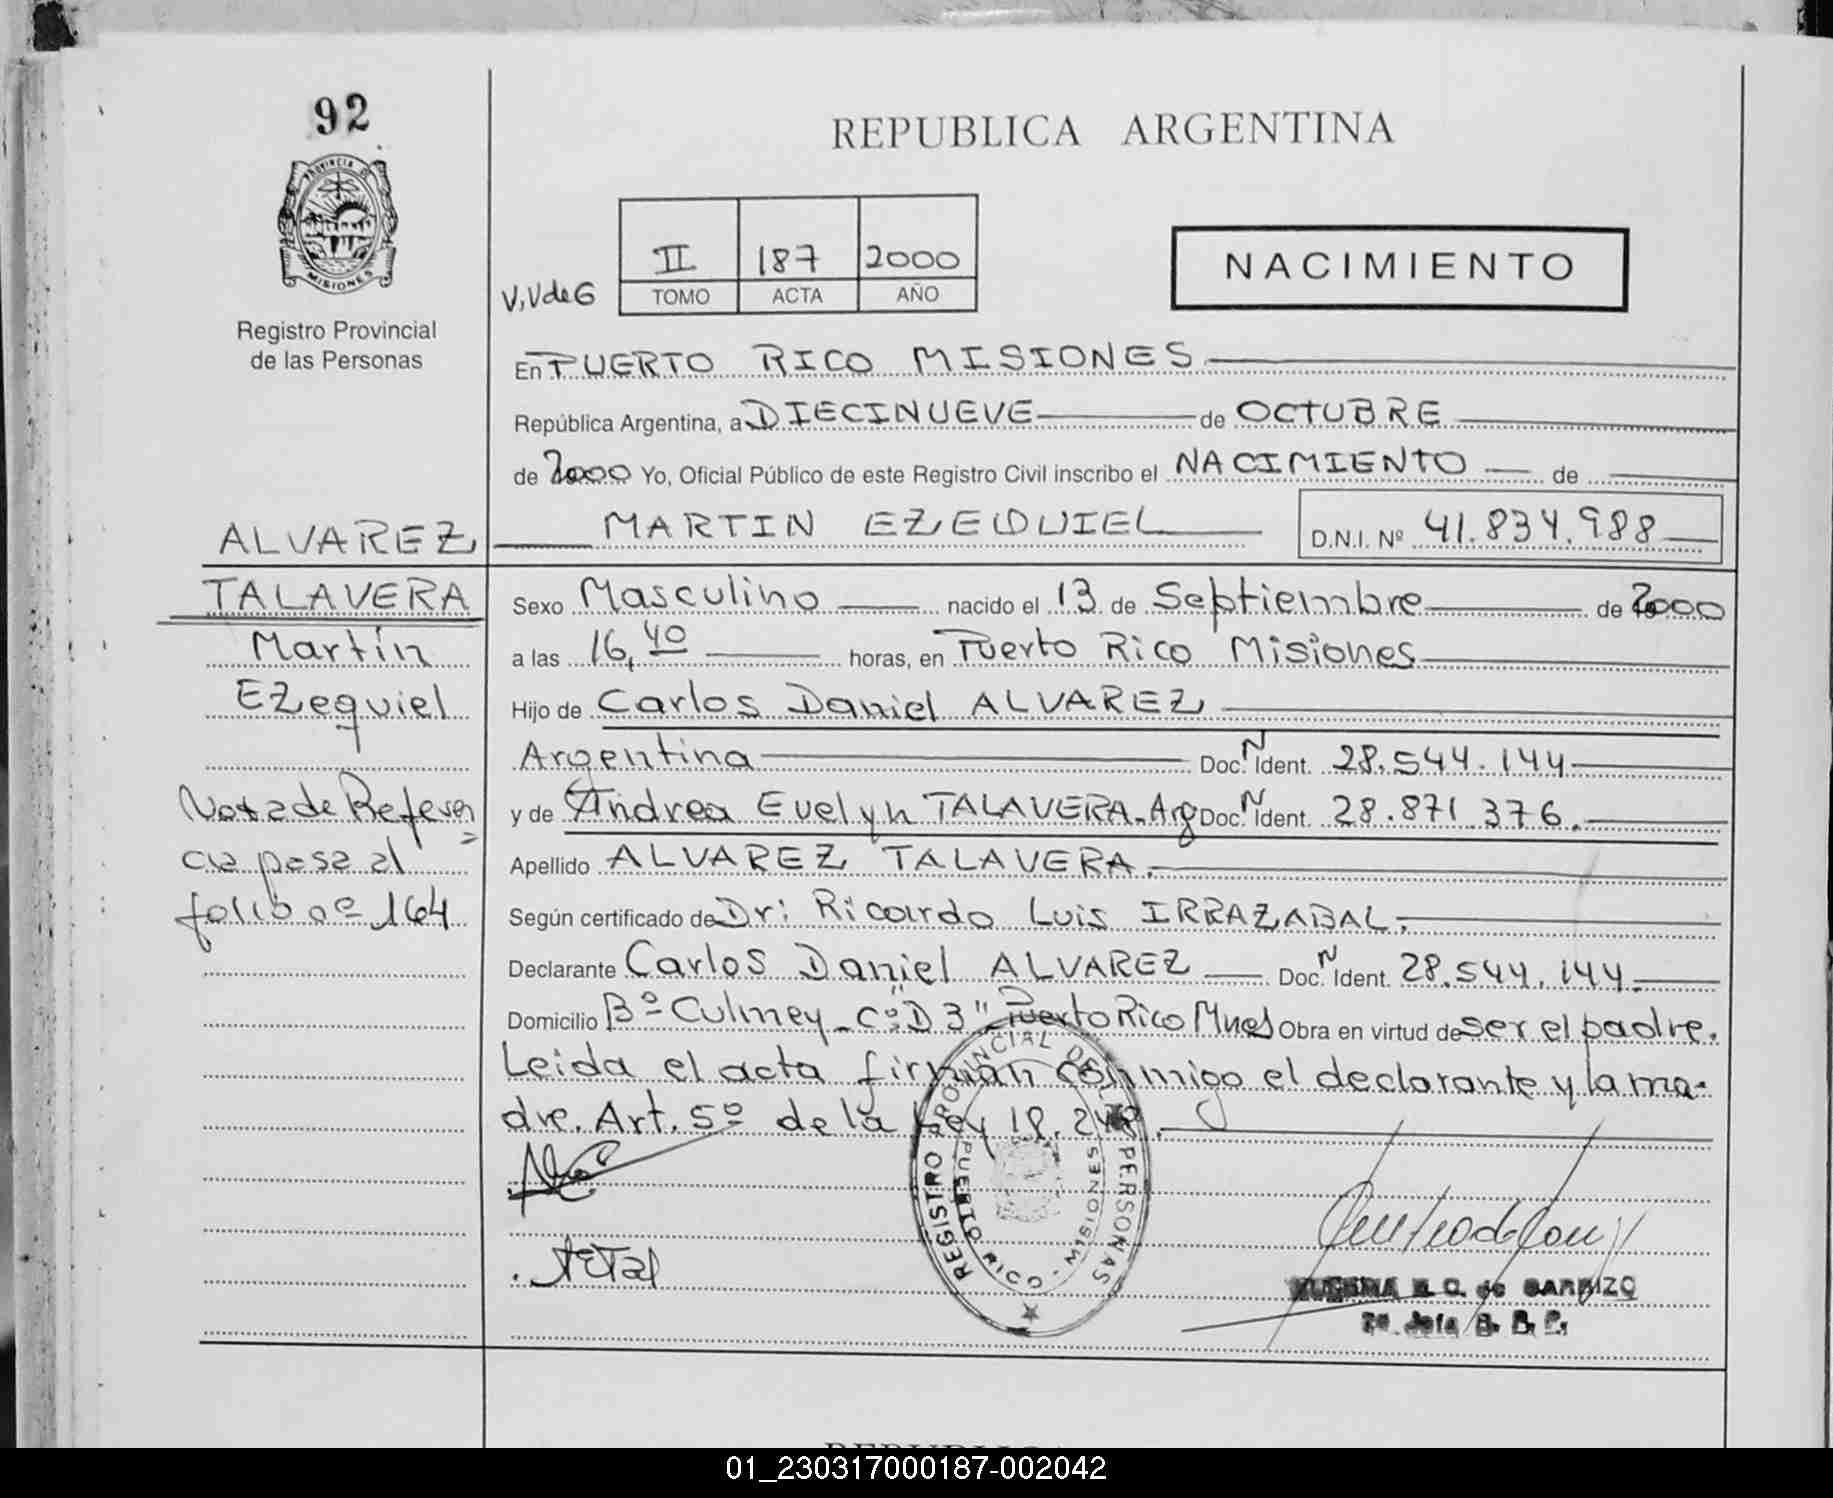 92
PROVINCIA DE
MISIONES
Registro Provincial
de las Personas
REPUBLICA ARGENTINA
V,VdeG
II 187 2000
TOMO ACTA AÑO
NACIMIENTO
En PUERTO RICO MISIONES
República Argentina, a DIECINUEVE de OCTUBRE
de 2000 Yo, Oficial Público de este Registro Civil inscribo el NACIMIENTO de
ALVAREZ MARTIN EZEQUIEL D.N.I. Nº 41.834.988
TALAVERA Sexo Masculino nacido el 13 de Septiembre de 2000
Martín a las 16,40 horas, en Puerto Rico Misiones
Ezequiel Hijo de Carlos Daniel ALVAREZ
Argentina Doc. N Ident. 28.544.144
Nota de Referen y de Andrea Evelyn TALAVERA-Arg Doc. N Ident. 28.871.376.
cia pasa al Apellido ALVAREZ TALAVERA.
folio nº 164 Según certificado de Dr: Ricardo Luis IRRAZABAL.
Declarante Carlos Daniel ALVAREZ Doc. N Ident. 28.544.144.
Domicilio Bº Culmey - Cº "D 3" Puerto Rico Mnes Obra en virtud de ser el padre.
Leida el acta firman conmigo el declarante y la ma-
dre. Art. 5º de la Ley 18.248.
REGISTRO PROVINCIAL DE LAS PERSONAS
PUERTO RICO - MISIONES
C. de
01_230317000187-002042